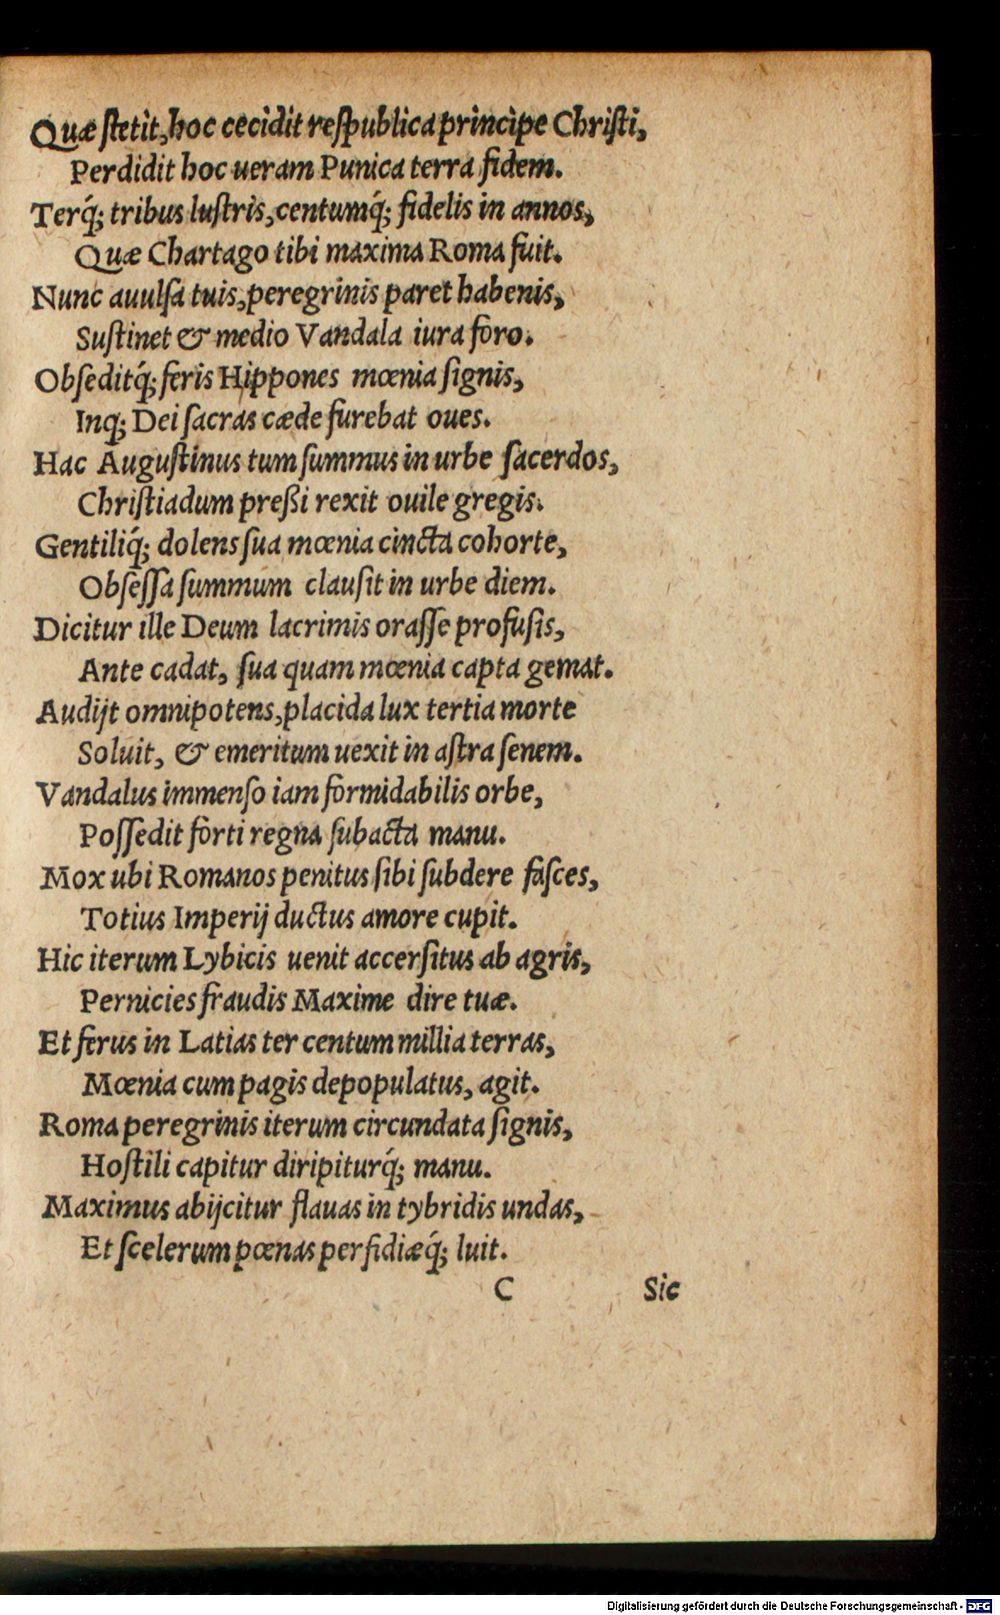 Quæ ſtetit, hoc cecidit reſpublica principe Chriſti,
Perdidit hoc ueram Punica terra fidem.
Terq́; tribus luſtris, centumq́; fidelis in annos,
Quæ Chartago tibi maxima Roma fuit.
Nunc auulſa tuis, peregrinis paret habenis,
Suſtinet & medio Vandala iura foro.
Obſeditq́; feris Hippones mœnia ſignis,
Inq; Dei ſacras cæde furebat oues.
Hac Auguſtinus tum ſummus in urbe ſacerdos,
Chriſtiadum preßi rexit ouile gregis.
Gentiliq́; dolens ſua mœnia cincta cohorte,
Obſeſſa ſummum clauſit in urbe diem.
Dicitur ille Deum lacrimis oraſſe profuſis,
Ante cadat, ſua quam mœnia capta gemat.
Audijt omnipotens, placida lux tertia morte
Soluit, & emeritum uexit in aſtra ſenem.
Vandalus immenſo iam formidabilis orbe,
Poſſedit forti regna ſubacta manu.
Mox ubi Romanos penitus ſibi ſubdere faſces,
Totius Imperij ductus amore cupit.
Hic iterum Lybicis uenit accerſitus ab agris,
Pernicies fraudis Maxime dire tuæ.
Et ferus in Latias ter centum millia terras,
Mœnia cum pagis depopulatus, agit.
Roma peregrinis iterum circundata ſignis,
Hoſtili capitur diripiturq́; manu.
Maximus abijcitur flauas in tybridis undas,
Et ſcelerum pœnas perfidiæq́; luit.
C Sic
Digitalisierung gefördert durch die Deutsche Forschungsgemeinschaft - DFG